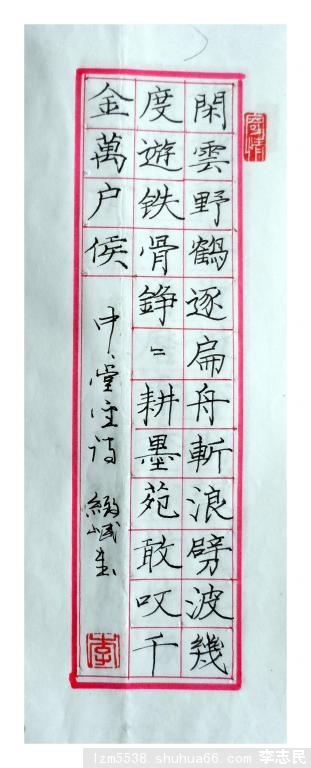 寄情
閑雲野鶴逐扁舟斬浪劈波幾
度遊铁骨錚〻耕墨苑敢叹千
金萬户侯
堂主诗
李
lzm5538.shuhua66.com 李志民